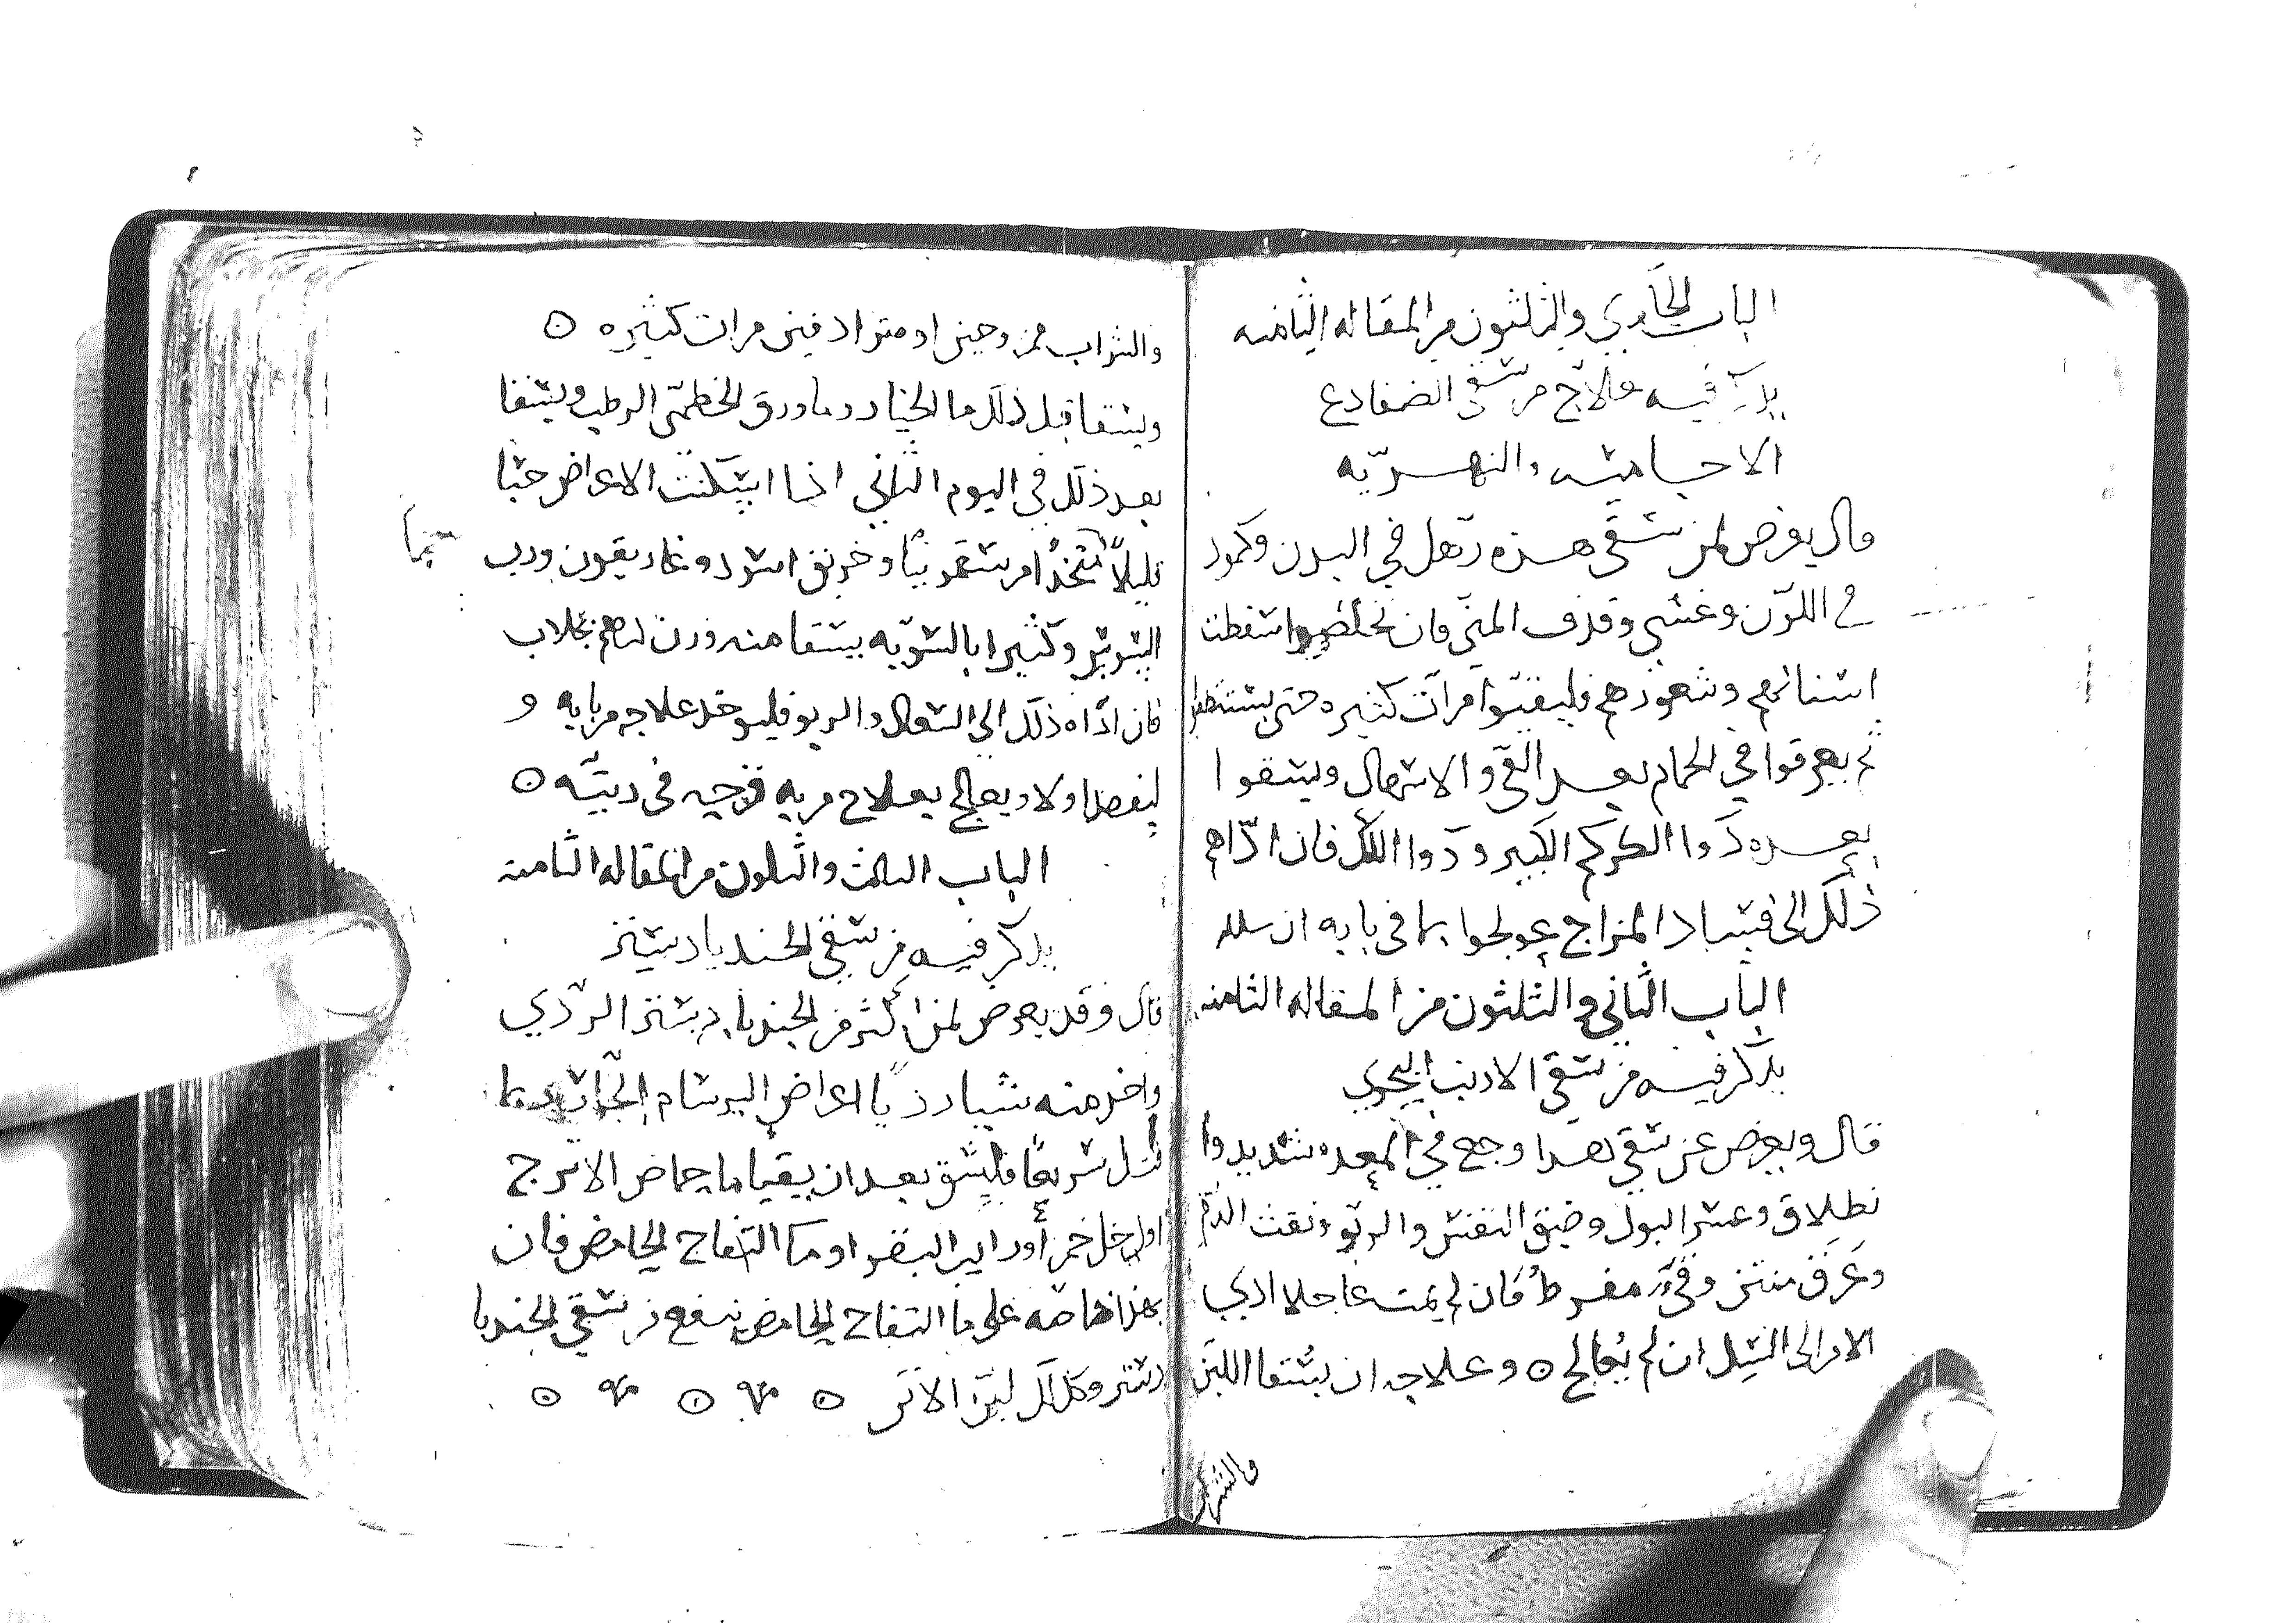 الباب الحادي والثلثون من المقاله الثامنه
يذكر فيه علاج من سقي الضفادع
الاجاميه والنهريه
قال يعرض لمن سقي هذه ترهل في البدن وكمود
في اللون وغشي وقذف المني فان تخلصوا سقطت
اسنانهم وشعورهم فليقيوا مرات كثيره حتى يستنظفوا
ثم يعرقوا في الحمام بعد القي والاسهال ويسقوا
بعده دوا الكركم الكبير ودوا اللك فان اداهم
ذلك الى فساد المزاج عولجوا بما في بابه ان
الباب الثاني والثلثون من المقاله الثامنه
يذكر فيه من سقي الارنب البحري
قال ويعرض عن سقي هذا وجع في المعده شديد وا
نطلاق وعسر البول وضيق النفس والربو ونفث الدم
وعرق منتن وقي مفرط فان لم يمت عاجلا ادي
الامر الى السل ان لم يعالج ٥ وعلاجه ان يسقا اللبن
والشراب
والشراب ممزوجين او مترادفين مرات كثيره ٥
ويسقا قبل ذلك ما الخيار وما ورق الخطمي الرطب ويسقا
بعد ذلك في اليوم الثاني اذا سكنت الاعراض حبا
قليلا متخذا من سقمونيا وخربق اسود وغاريقون ورب
السوس وكثيرا بالسويه يسقا منه وزن درهم بجلاب
فان اداه ذلك الى السعال والربو فليوخذ علاجه من بابه و
ليفصد اولا ويعالج بعلاج من به قرحه في ريته ٥
الباب الثالث والثلثون من المقاله الثامنه
يذكر فيه من سقي الجندبادستر
قال وقد يعرض لمن اكثر من الجندبادستر الردي
واخذ منه شيا رديا اعراض البرسام الحاد وربما
قتل سريعا فليسق بعد ان يقيا ما حماض الاترج
او خل خمر او رايب البقر او ما التفاح الحامض فان
بهذا خاصه على ما التفاح الحامض ينفع من سقي الجندبا
دستر وكذلك لبن الاتن ٥ ٥ ٥